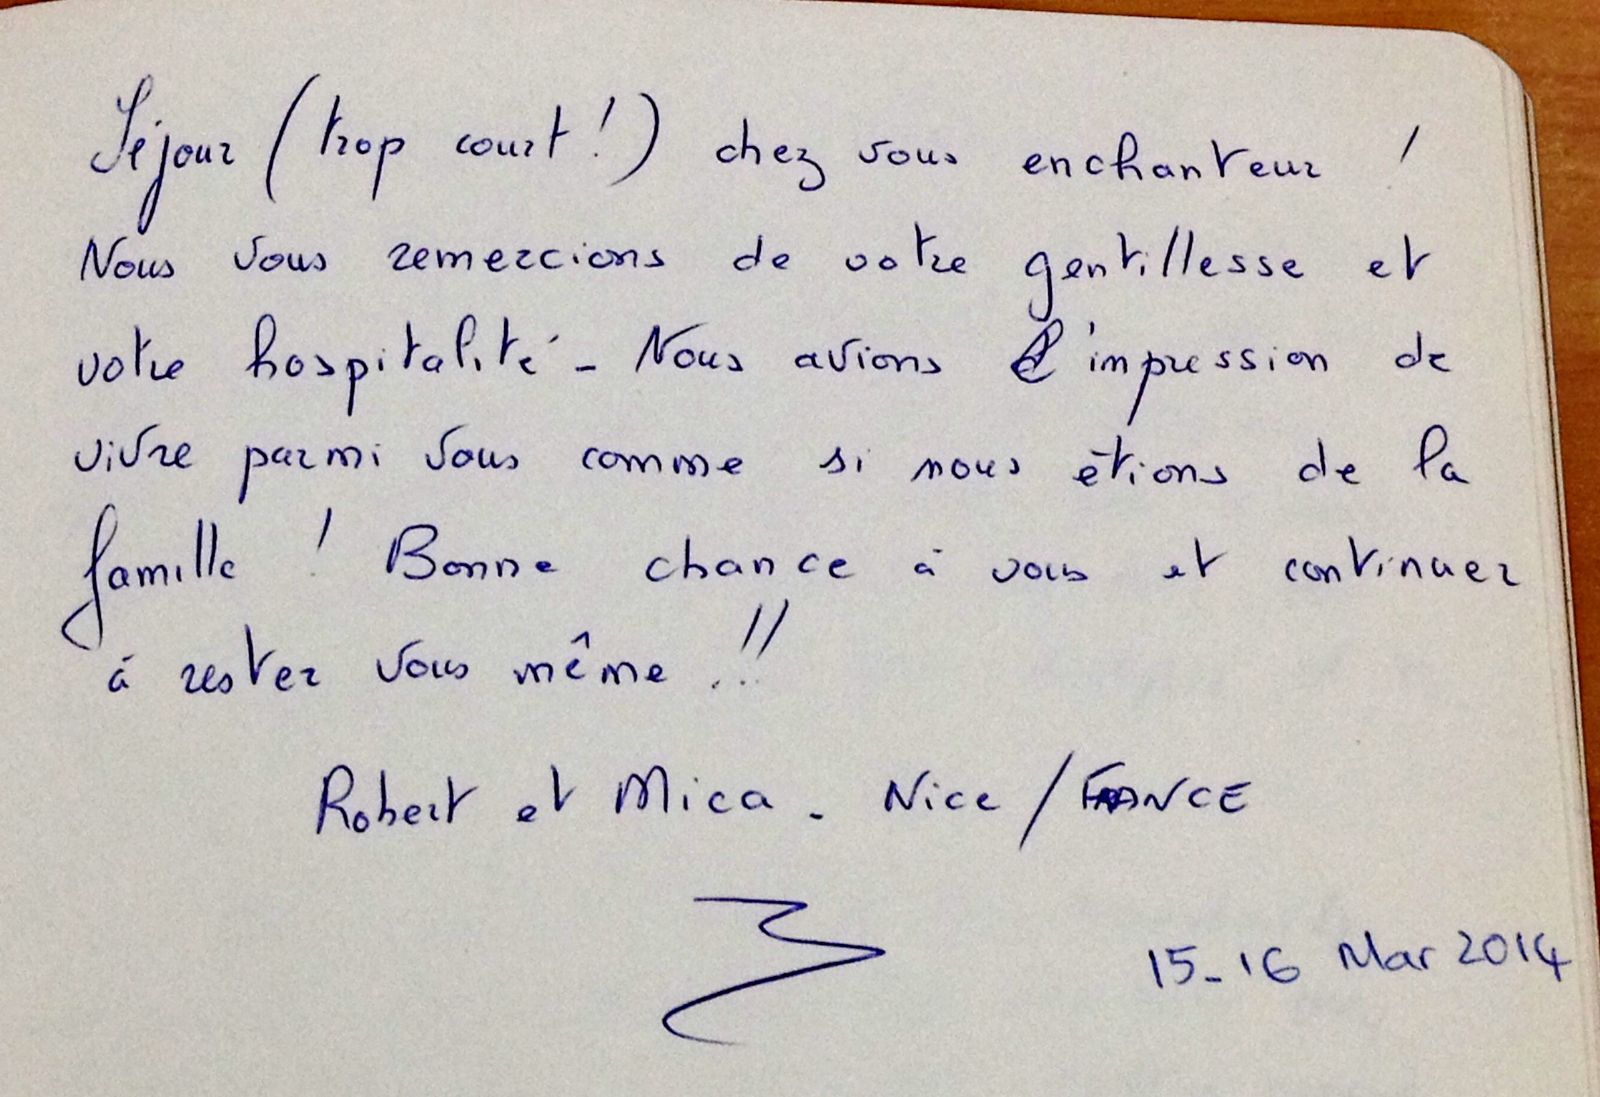 Séjour (trop court !) chez vous enchanteur !
Nous vous remercions de votre gentillesse et
votre hospitalité - Nous avions l'impression de
vivre parmi vous comme si nous étions de la
famille ! Bonne chance à vous et continuer
à rester vous même !!!
Robert et Mica - Nice / FRANCE
15-16 Mar 2014